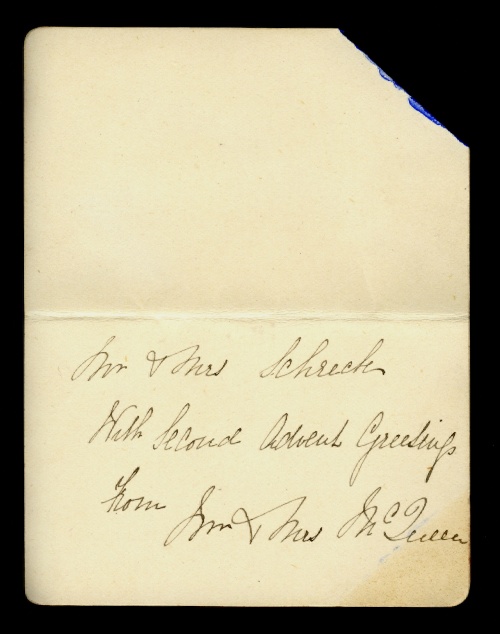 Mr & Mrs Schreck
With Second Advent Greetings
From Mr & Mrs McQueen